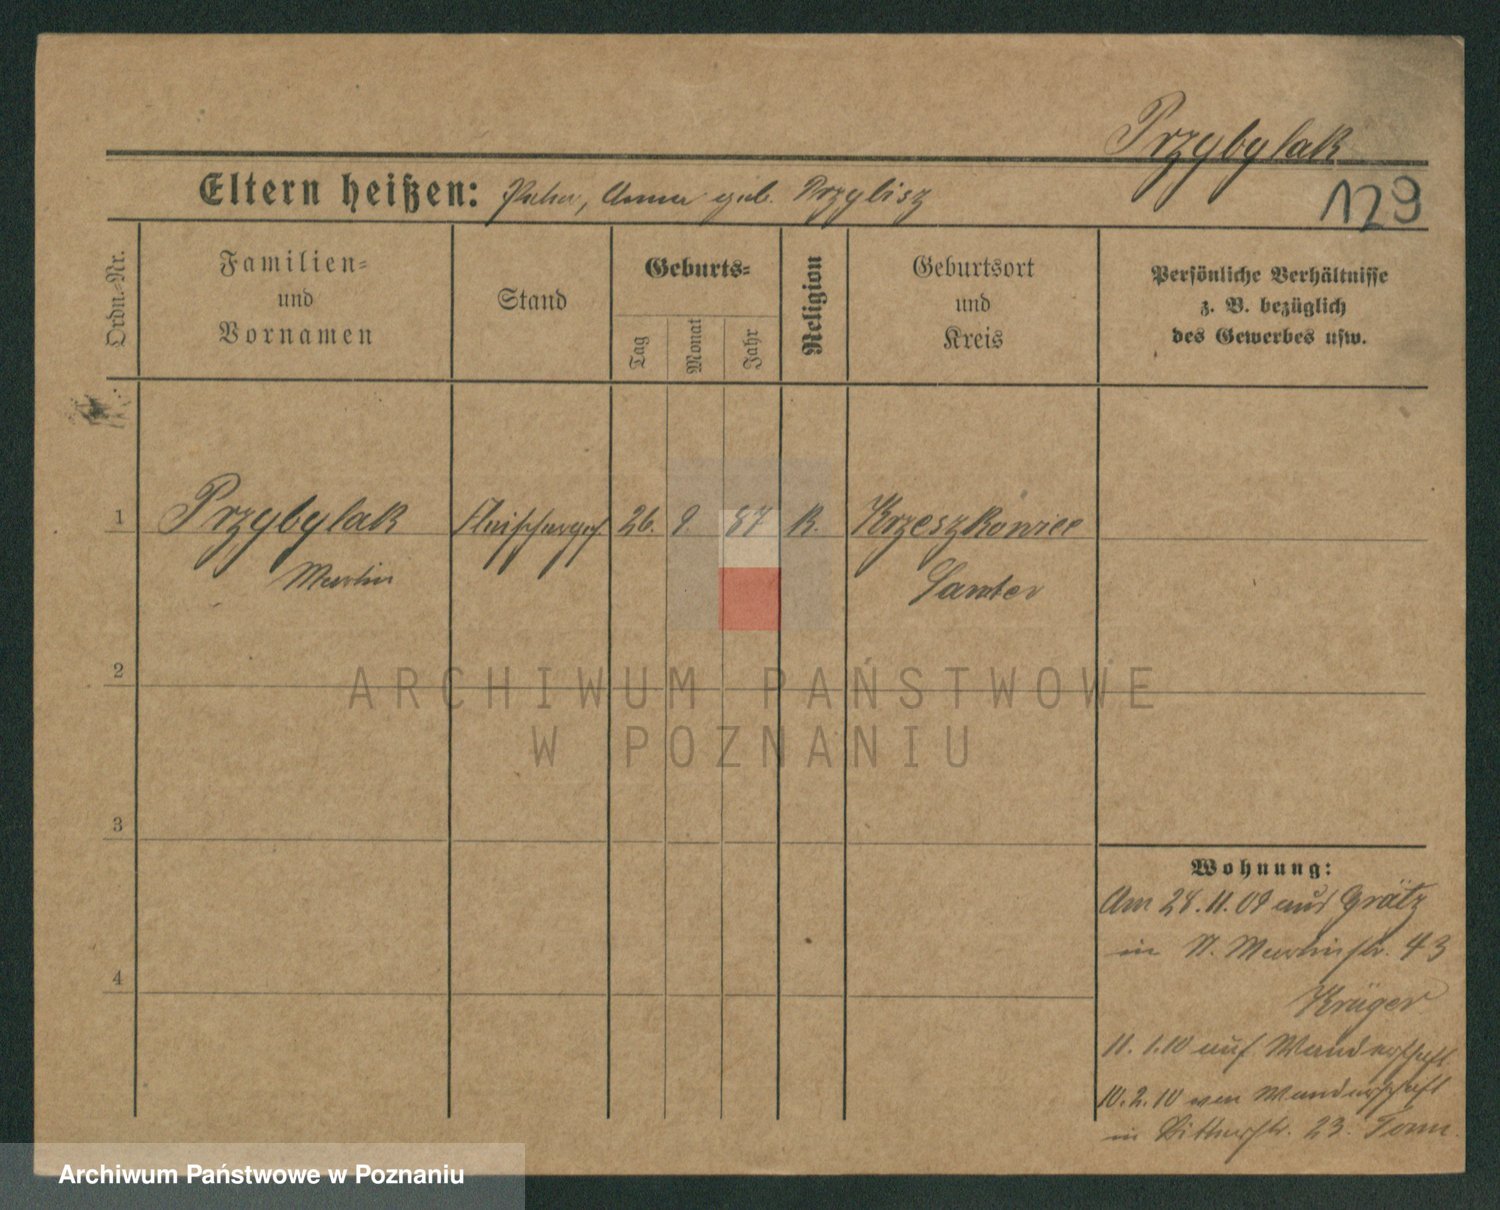 Przybylak
129
Eltern heißen: Peter, Anna geb. Przylisz
Ordn.-Nr.
Familien-
und
Vornamen
Stand
Geburts-
Tag
Monat
Jahr
Religion
Geburtsort
und
Kreis
Persönliche Verhältnisse
z. B. bezüglich
des Gewerbes usw.
1
Przybylak
Martin
Fleischerges.
26. 9. 87
K.
Krzeszkowice
Samter
2
3
4
ARCHIWUM PAŃSTWOWE
W POZNANIU
Wohnung:
Am 28.11.09 aus Grätz
in St. Martinstr. 43
Krüger
11. 1.10 auf Wanderschaft
10.2.10 von Wanderschaft
in Ritterstr. 23.
Archiwum Państwowe w Poznaniu